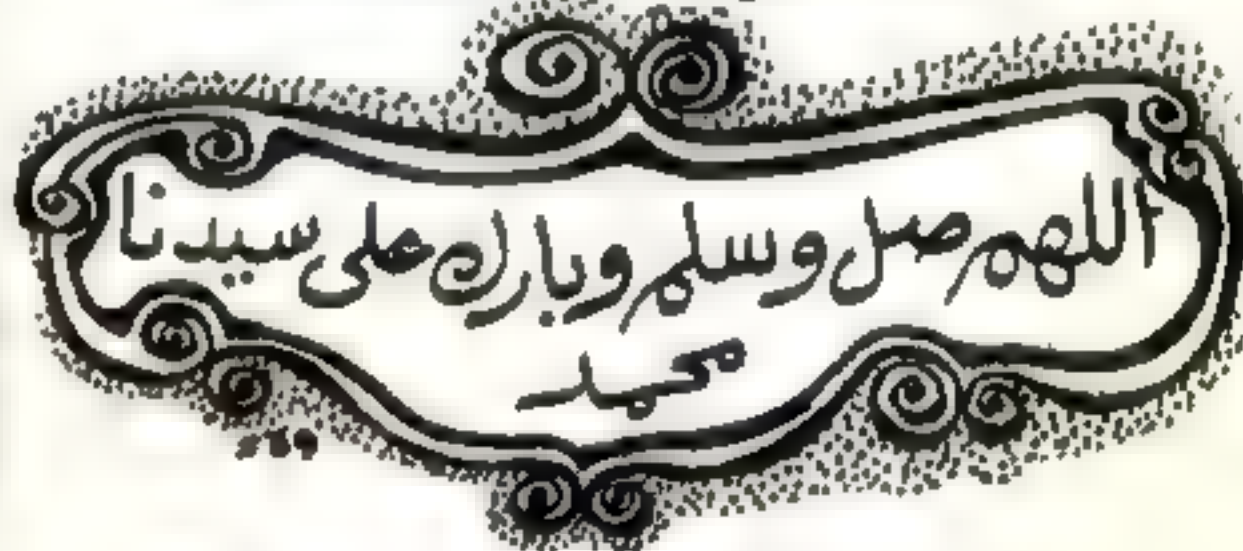 اللهم صل وسلم وبارك على سيدنا
محمد